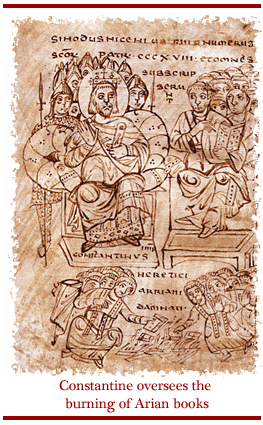 SINHODUS NUMERUS
SCOR· PATR· CCCXVIII· ET OMNES
SUBSCRIP
SERU
CONSTANTINUS
HERETICI
ARRIANI
DAMNATI·
Constantine oversees the
burning of Arian books